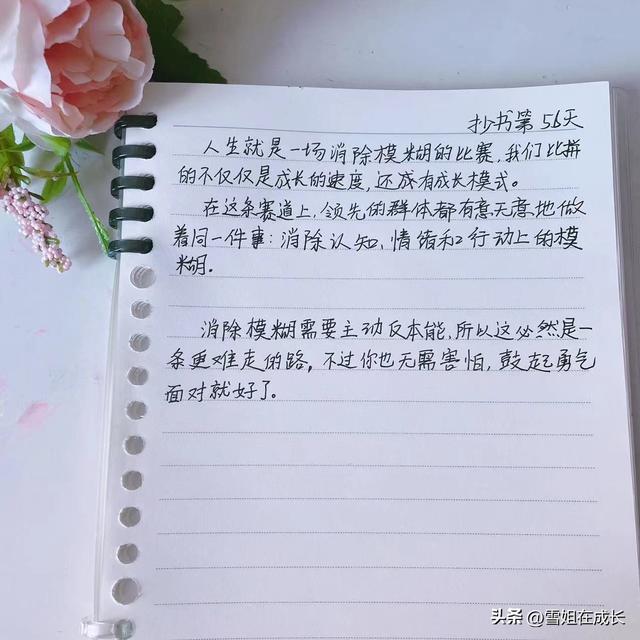 抄书第56天
人生就是一场消除模糊的比赛,我们比拼
的不仅仅是成长的速度,还有成长模式。
在这条赛道上,领先的群体都有意无意地做
着同一件事:消除认知、情绪和行动上的模
糊.
消除模糊需要主动反本能,所以这必然是一
条更难走的路。不过你也无需害怕,鼓起勇气
面对就好了。
头条 @雪姐在成长